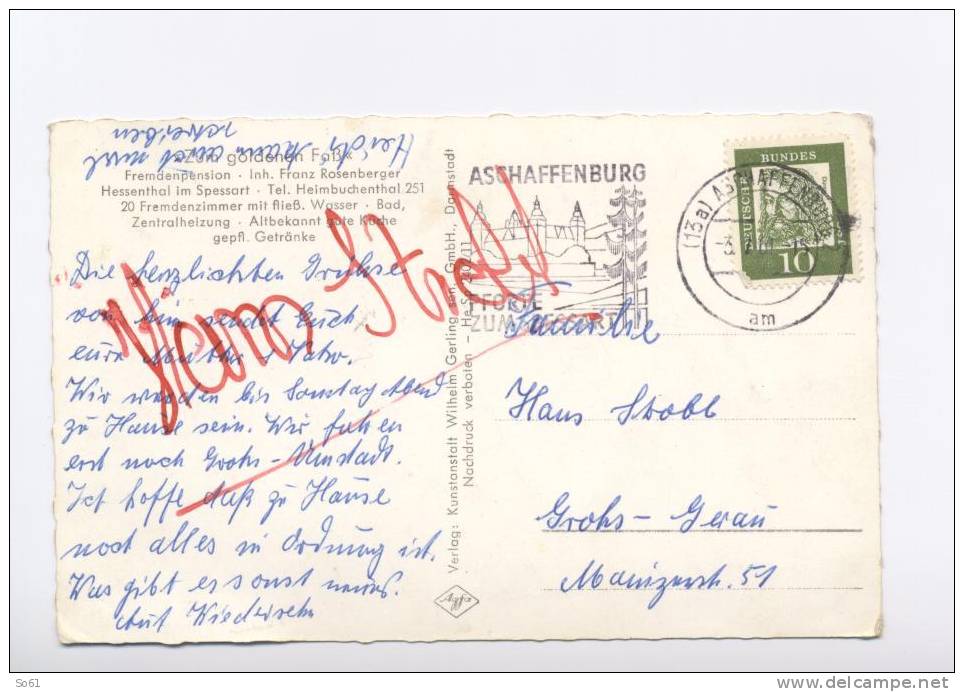 »Zum goldenen Faß«
Fremdenpension · Inh. Franz Rosenberger
Hessenthal im Spessart · Tel. Heimbuchenthal 251
20 Fremdenzimmer mit fließ. Wasser · Bad,
Zentralheizung · Altbekannt gute Küche
gepfl. Getränke
Die herzlichsten Grühse
von hier sendet Euch
eure Mutter
Wir werden bis Sonntag Abend
zu Hause sein. Wir fahren
erst noch Grohs-Umstadt.
Ich hoffe daß zu Hause
noch alles in Ordnung ist.
Was gibt es sonst neues.
Auf Wiedersehn
Heidi kann auch mal
schreiben
Verlag: Kunstanstalt Wilhelm Gerling sen. GmbH., Darmstadt
Nachdruck verboten
Agfa
ASCHAFFENBURG
PFORTE
ZUM SPESSART
(13a) ASCHAFFENBURG
am
DEUTSCHE
BUNDES
10
Familie
Hans Strobl
Grohs-Gerau
Mainzerstr. 51
So61
delcampe.net